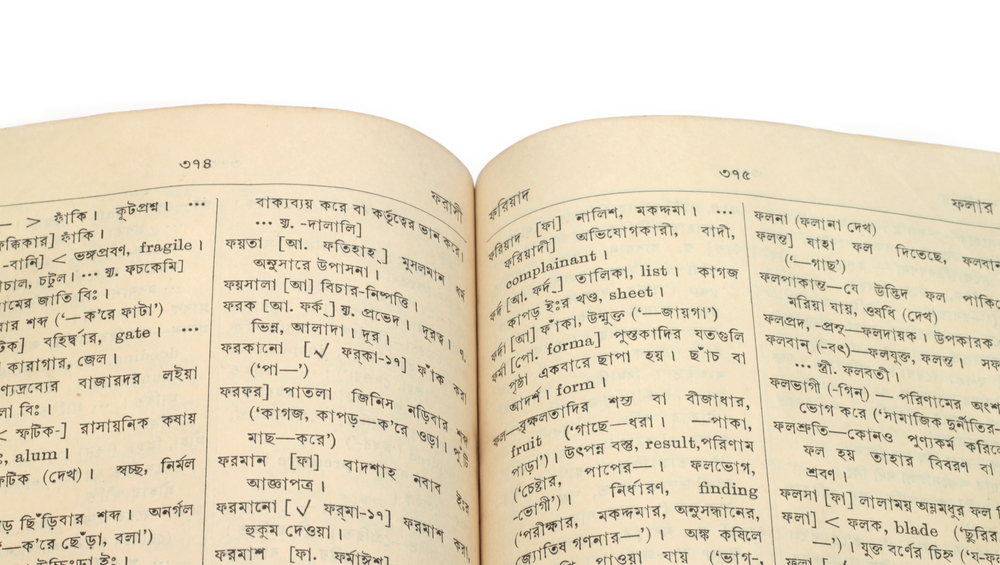 ৩৭৪
ফরাসী
— > ফাঁকি। কূটপ্রশ্ন। ...
ফাঁকি।
-বানি] < ভঙ্গপ্রবণ, fragile।
চটুল। ... য়্য. ফচকেমি]
জাতি বিঃ।
শব্দ ('—ক'রে ফাটা')
বহির্দ্বার, gate। ...
কারাগার, জেল।
বাজারদর লইয়া
বিঃ।
< স্ফটিক-] রাসায়নিক কষায়
alum।
(দেখ)। স্বচ্ছ, নির্মল
ছিঁড়িবার শব্দ। অনর্গল
—ক'রে ছেঁড়া, বলা')
বাক্যব্যয় করে বা কর্তৃত্বের ভান করে।
... য়্য. -দালালি]
ফয়তা [আ. ফতিহাহ্] মুসলমান ধর্ম
অনুসারে উপাসনা।
ফয়সালা [আ] বিচার-নিষ্পত্তি।
ফরক [আ. ফর্ক্] য়্য. প্রভেদ। দূরত্ব।
ভিন্ন, আলাদা। দূর।
ফরকানো [√ ফর্‌কা-১৭] ফাঁক করা
('পা—')
ফরফর] পাতলা জিনিস নড়িবার শব্দ
('কাগজ, কাপড়—ক'রে ওড়া। পুঁটি
মাছ—করে')
ফরমান [ফা] বাদশাহ নবাব ইঃর
আজ্ঞাপত্র।
ফরমানো [√ ফর্‌মা-১৭] ফরমাশ করা,
হুকুম দেওয়া।
ফরমাশ [ফা. ফর্মাঈশ]
৩৭৫
ফরিয়াদ
ফলার
ফরিয়াদ [ফা] নালিশ, মকদ্দমা। ...
ফরিয়াদী] অভিযোগকারী, বাদী,
complainant।
ফর্দ [আ. ফর্দ্] তালিকা, list। কাগজ
কাপড় ইঃর খণ্ড, sheet।
ফর্দা [আ] ফাঁকা, উন্মুক্ত ('—জায়গা')
ফর্মা [পো. forma] পুস্তকাদির যতগুলি
পৃষ্ঠা একবারে ছাপা হয়। ছাঁচ বা
আদর্শ। form।
ফল—বৃক্ষলতাদির শস্য বা বীজাধার,
fruit ('গাছে—ধরা। —পাকা,
পাড়া')। উৎপন্ন বস্তু, result, পরিণাম
('চেষ্টার, পাপের—। ফলভোগ,
-ভোগী')। নির্ধারণ, finding
('পরীক্ষার, মকদ্দমার, অনুসন্ধানের,
জ্যোতিষ গণনার—')। অঙ্ক কষিলে
পাওয়া যায় ('ভাগ-,
ফলনা (ফলানা দেখ)
ফলন্ত] যাহা ফল দিতেছে, ফলবান
('—গাছ')
ফলপাকান্ত—যে উদ্ভিদ ফল
মরিয়া যায়, ওষধি (দেখ)
ফলপ্রদ, -প্রসূ—ফলদায়ক। উপকারক
ফলবান্ (-বৎ)—ফলযুক্ত, ফলন্ত।
... স্ত্রী. ফলবতী।
ফলভাগী (-গিন্) — পরিণামের
ভোগ করে ('সামাজিক দুর্নীতির-
ফলশ্রুতি—কোনও পুণ্যকর্ম
ফল হয় তাহার বিবরণ বা
শ্রবণ।
ফলসা [ফা] লালাময় অম্লমধুর ফল
ফলা] < ফলক, blade ('ছুরির
—')। যুক্ত বর্ণের চিহ্ন